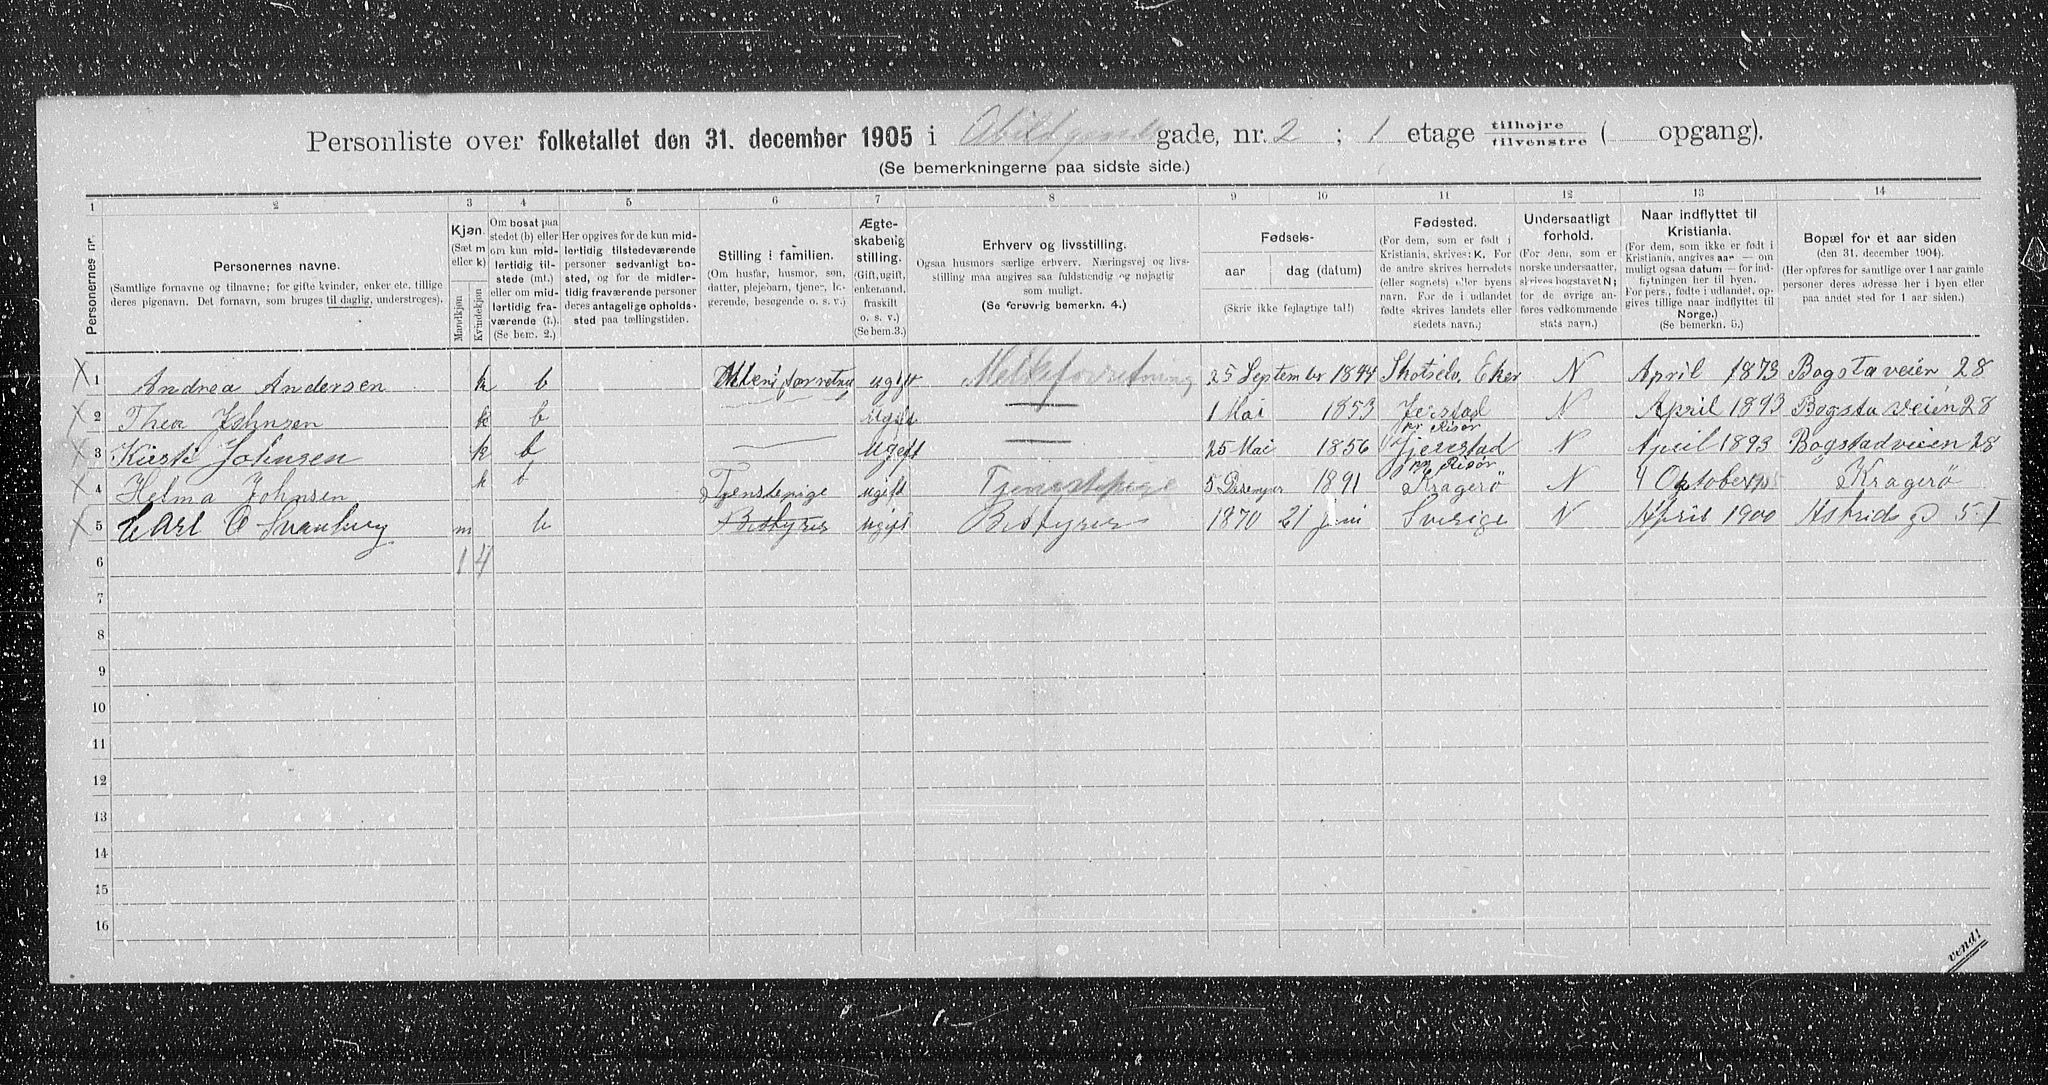 Personliste over folketallet den 31. december 1905 i gade, nr. 2 ; 1 etage tilhøjre/tilvenstre ( opgang).
(Se bemerkningerne paa sidste side.)
1 2 3 4 5 6 7 8 9 10 11 12 13 14
Personernes nr.
Personernes navne.
(Samtlige fornavne og tilnavne; for gifte kvinder, enker etc. tillige deres pigenavn. Det fornavn, som bruges til daglig, understreges).
Kjøn. (Sæt m eller k)
Mandkjøn.
Kvindekjøn
Om bosat paa stedet (b) eller om kun midlertidig tilstede (mt.) eller om midlertidig fraværende (f.) (Se bem. 2.)
Her opgives for de kun midlertidig tilstedeværende personer sedvanligt bosted, og for de midlertidig fraværende personer deres antagelige opholdssted paa tællingstiden.
Stilling i familien.
(Om husfar, husmor, søn, datter, plejebarn, tjener, logerende, besøgende o. s. v.)
Ægteskabelig stilling.
(Gift, ugift, enkenand, fraskilt o. s. v.) (Se bem. 3.)
Erhverv og livsstilling.
Ogsaa husmors særlige erhverv. Næringsvej og livsstilling maa angives saa fuldstændig og nøjagtig som muligt.
(Se forøvrig bemerkn. 4.)
Fødsels-
aar dag (datum)
(Skriv ikke fejlagtige tal!)
Fødested.
(For dem, som er født i Kristiania, skrives: K. For de andre skrives herredets (eller sognets) eller byens navn. For de i udlandet fødte skrives landets eller stedets navn.)
Undersaatligt forhold.
(For dem, som er norske undersaatter, skrives bogstavet N; for de øvrige anføres vedkommende stats navn.)
Naar indflyttet til Kristiania.
(For dem, som ikke er født i Kristiania, angives aar — om muligt ogsaa datum — for indflytningen her til byen. For pers., født i udlandet, opgives tillige naar indflyttet til Norge.)
(Se bemerkn. 5.)
Bopæl for et aar siden
(den 31. december 1904).
(Her opføres for samtlige over 1 aar gamle personer deres adresse her i byen eller paa andet sted for 1 aar siden.)
X 1 Andrea Andersen k b ugift Melkeforretning 25 September 1844 Skotselv. Eker N April 1873 Bogstaveien 28
X 2 Thea Johnsen k b — Ugift — 1 Mai 1853 Jerstad pr Risør N April 1893 Bogsta veien 28
X 3 Kirsti Johnsen k b — ugift — 25 Mai 1856 Gjerestad pr Risør N April 1893 Bogstadveien 28
X 4 Helma Johnsen k b Tjenstepige ugift Tjenestepige 5 1891 Kragerø N 4 Oktober Kragerø
X 5 Carl O Svanberg m b Bestyrer ugift Bestyrer 1870 21 juni Sverige N April 1900 Astrids gd 5 I
6 1 4
7
8
9
10
11
12
13
14
15
16
vend!